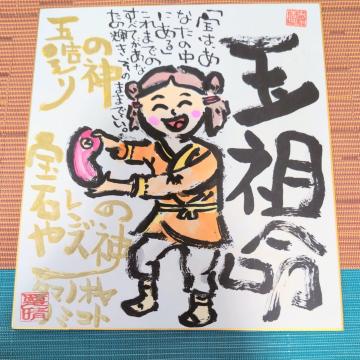 玉祖命
「宝はあ
なたの中
にある」
これまでの
すべてがあな
たの輝き。そのままでいい。
の神
玉造り
の神
レンズ
宝石や
タマノオヤ
ノミコト